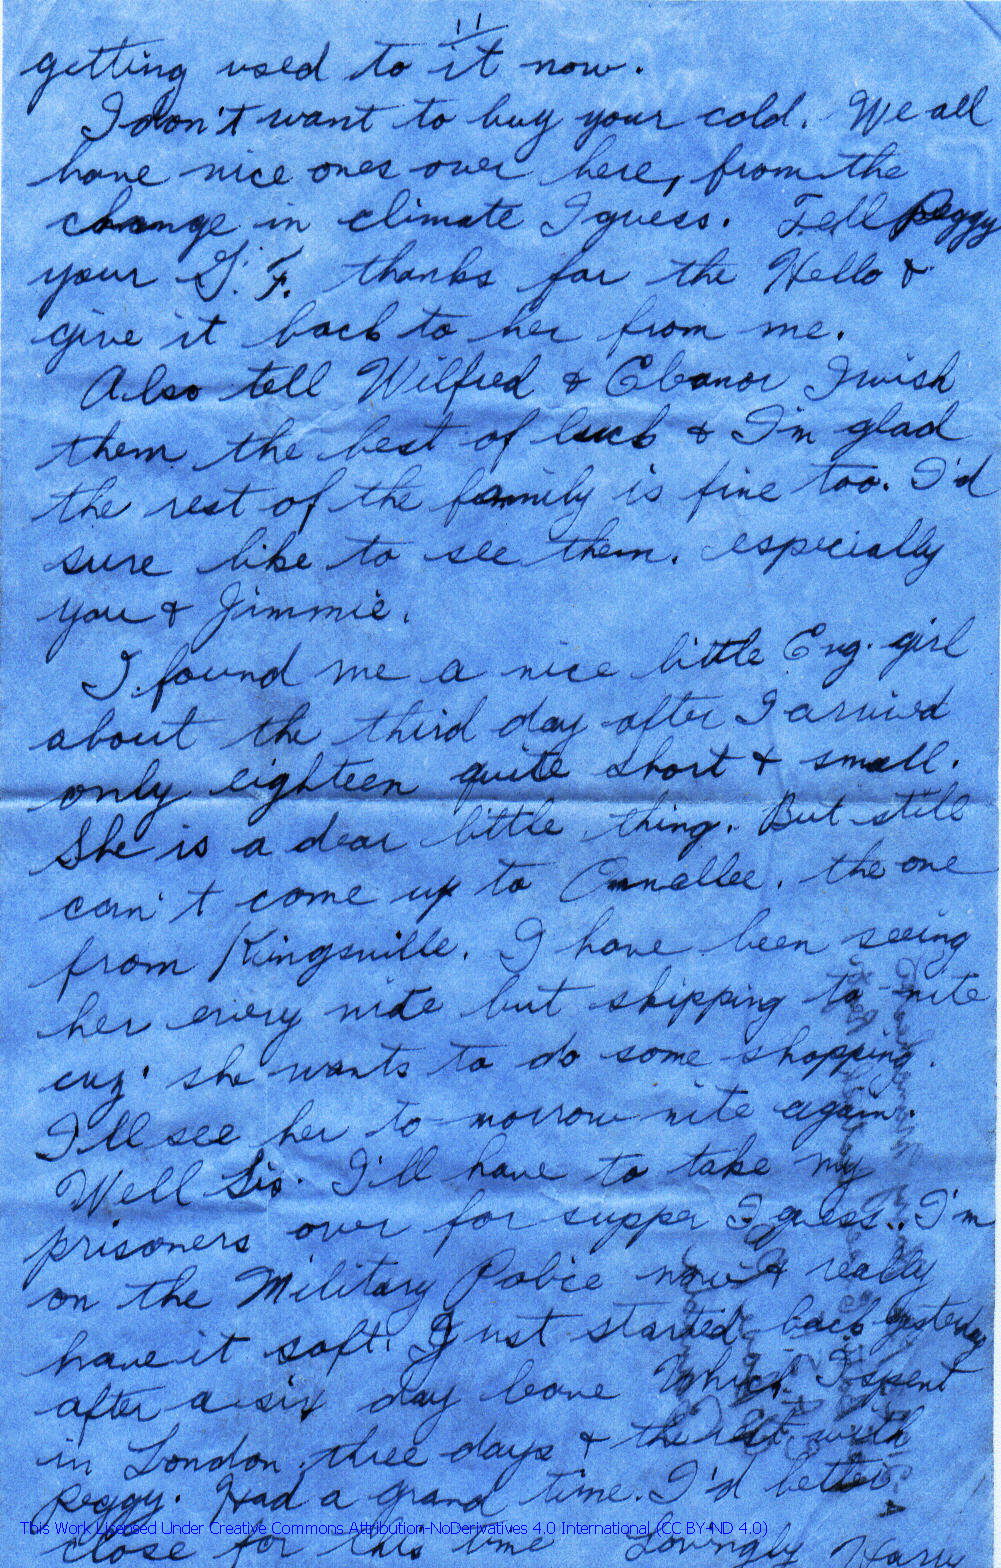 "
getting used to it now.
I don't want to buy your cold. We all
have nice ones over here, from the
change in climate I guess. Tell Peggy
your G.F. thanks for the Hello &
give it back to her from me.
Also tell Wilfred & Eleanor I wish
them the best of luck & I'm glad
the rest of the family is fine too. I'd
sure like to see them, especially
you & Jimmie.
I found me a nice little Eng. girl
about the third day after I arrived
only eighteen quite short & small.
She is a dear little thing. But still
can't come up to the one
from Kingsville. I have been seeing
her every nite but skipping to-nite
cuz' she wants to do some shopping.
I'll see her to-morrow nite again.
Well Sis. I'll have to take my
prisoners over for supper I guess.. I'm
on the Military Police now & really
have it soft. Just started back yesterday
after a six day leave Which I spent
in London three days & the rest with
Peggy. Had a grand time. I'd better
close for this time Lovingly
This Work Licensed Under Creative Commons Attribution-NoDerivatives 4.0 International (CC BY-ND 4.0)